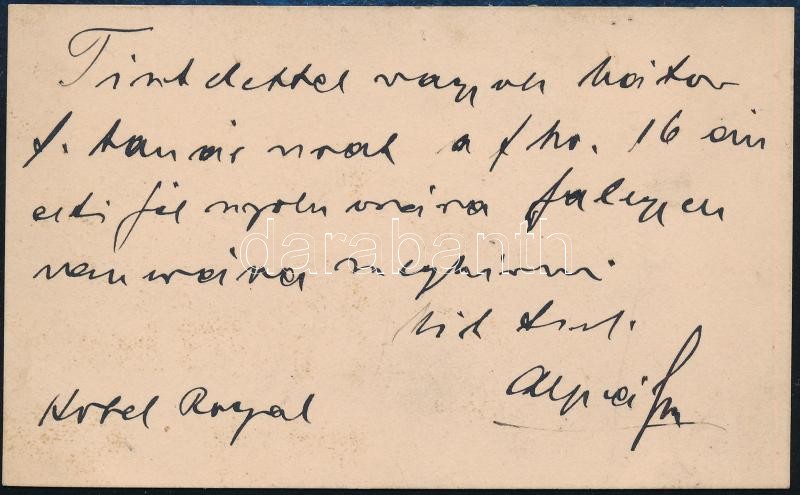 Tisztelettel vagyok bátor
f. tanár urat a f hó. 16 án
esti fél nyolc órára
vacsorára meghívni
Kiv. tiszt.
Hotel Royal
darabanth